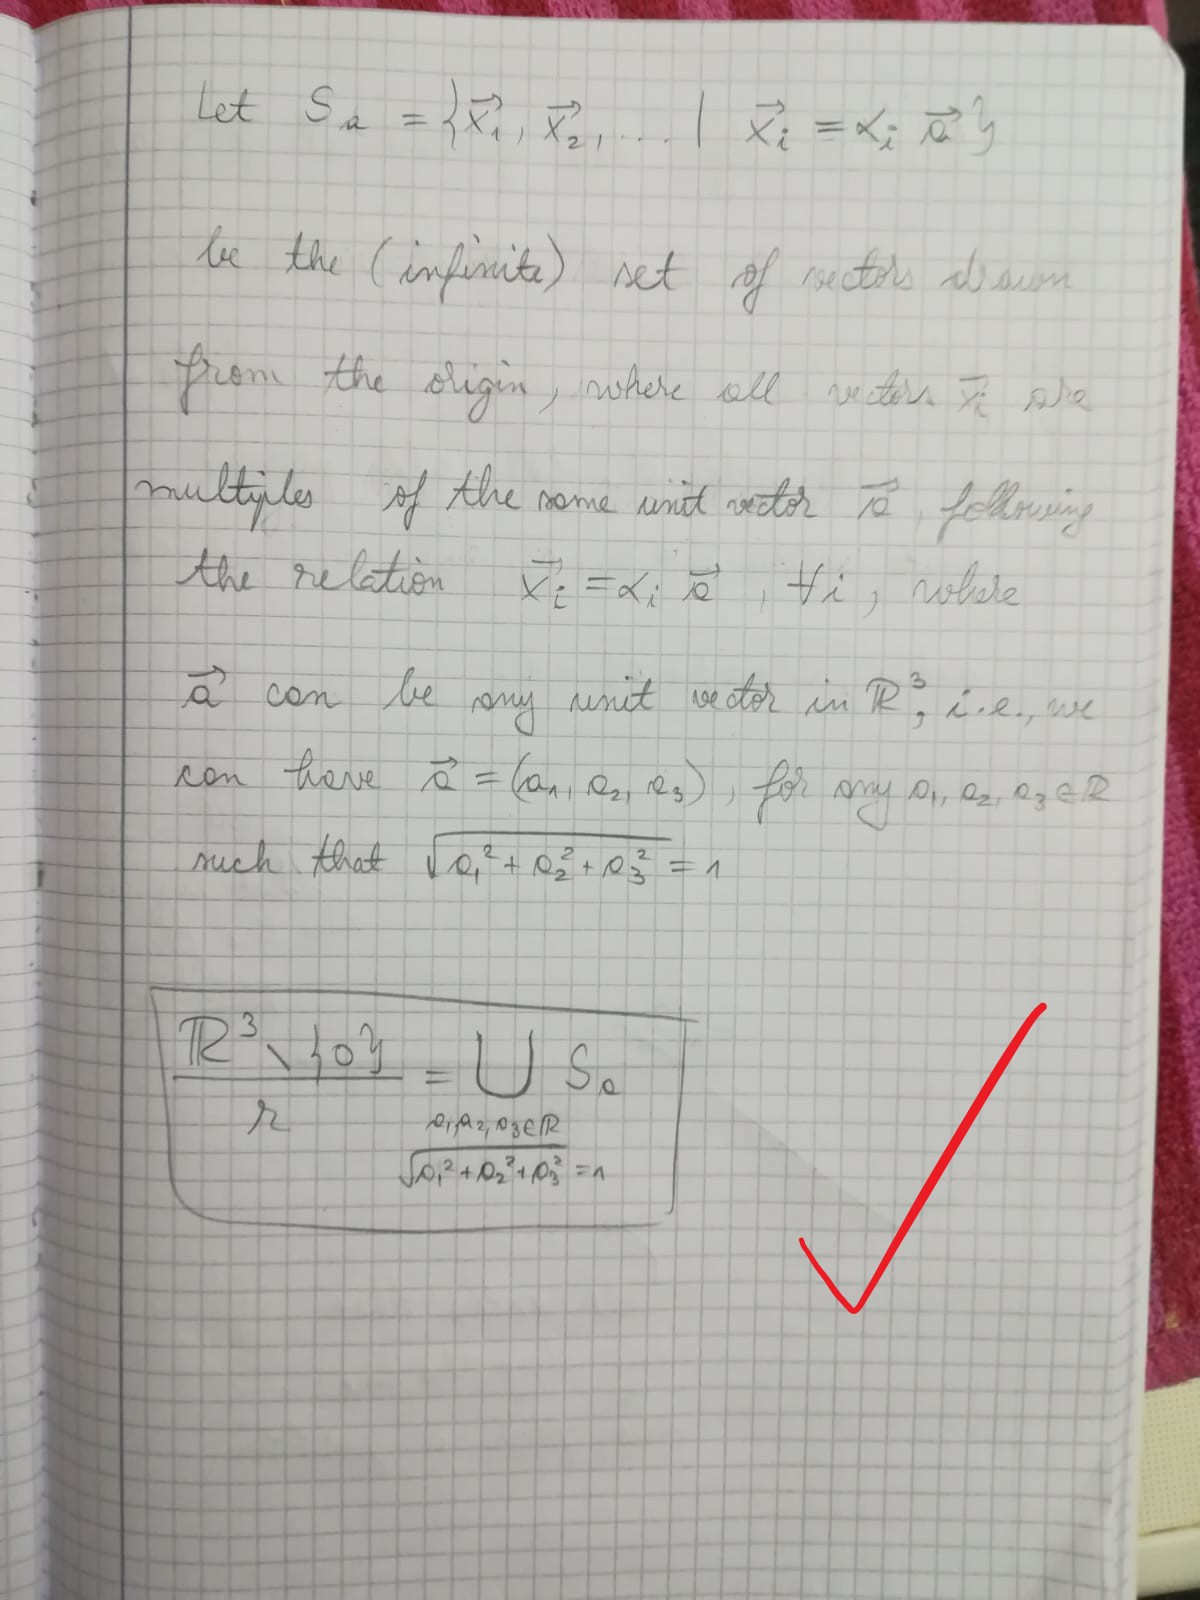 Let S_a = {x⃗_1, x⃗_2, ... | x⃗_i = α_i a⃗}
be the (infinite) set of vectors drawn
from the origin, where all vectors x⃗_i are
multiples of the same unit vector a⃗, following
the relation x⃗_i = α_i a⃗, ∀i, where
a⃗ can be any unit vector in ℝ³, i.e., we
can have a⃗ = (a_1, a_2, a_3), for any a_1, a_2, a_3 ∈ ℝ
such that √(a_1² + a_2² + a_3²) = 1
(ℝ³ \ {0}) / r = ⋃ S_a
a_1, a_2, a_3 ∈ ℝ
√(a_1² + a_2² + a_3²) = 1